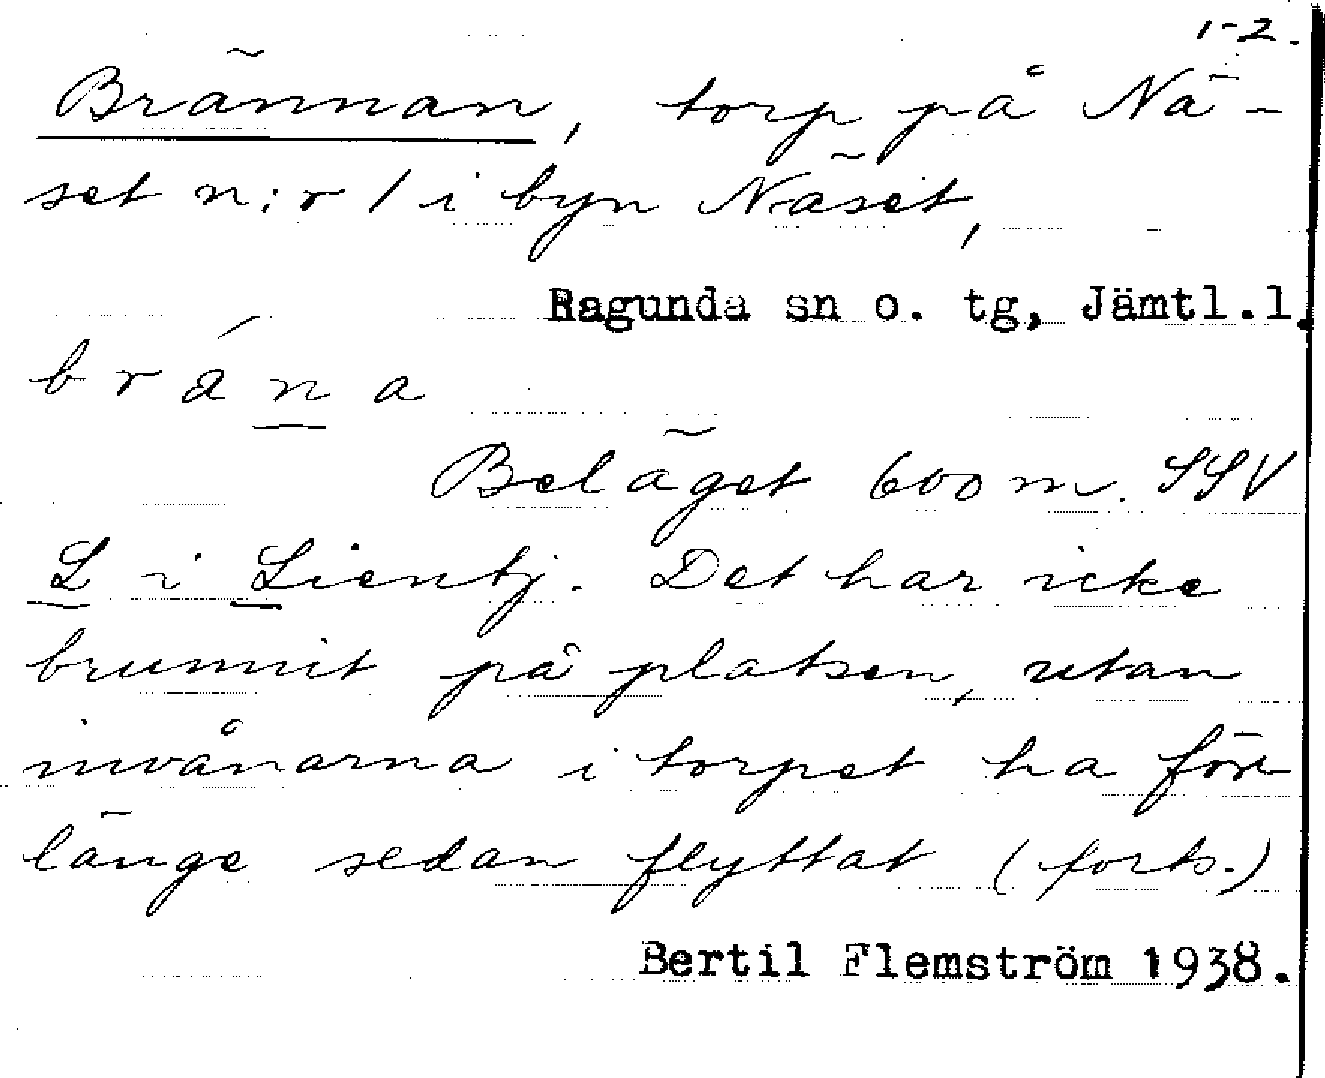 1-2.
Brännan, torp på Nä-
set n:r 1 i byn Näset,
Ragunda sn o. tg, Jämtl.l.
brá̠na
Beläget 600 m. SSV
L i Lientj. Det har icke
brunnit på platsen, utan
invånarna i torpet ha för
länge sedan flyttat (forts.)
Bertil Flemström 1938.